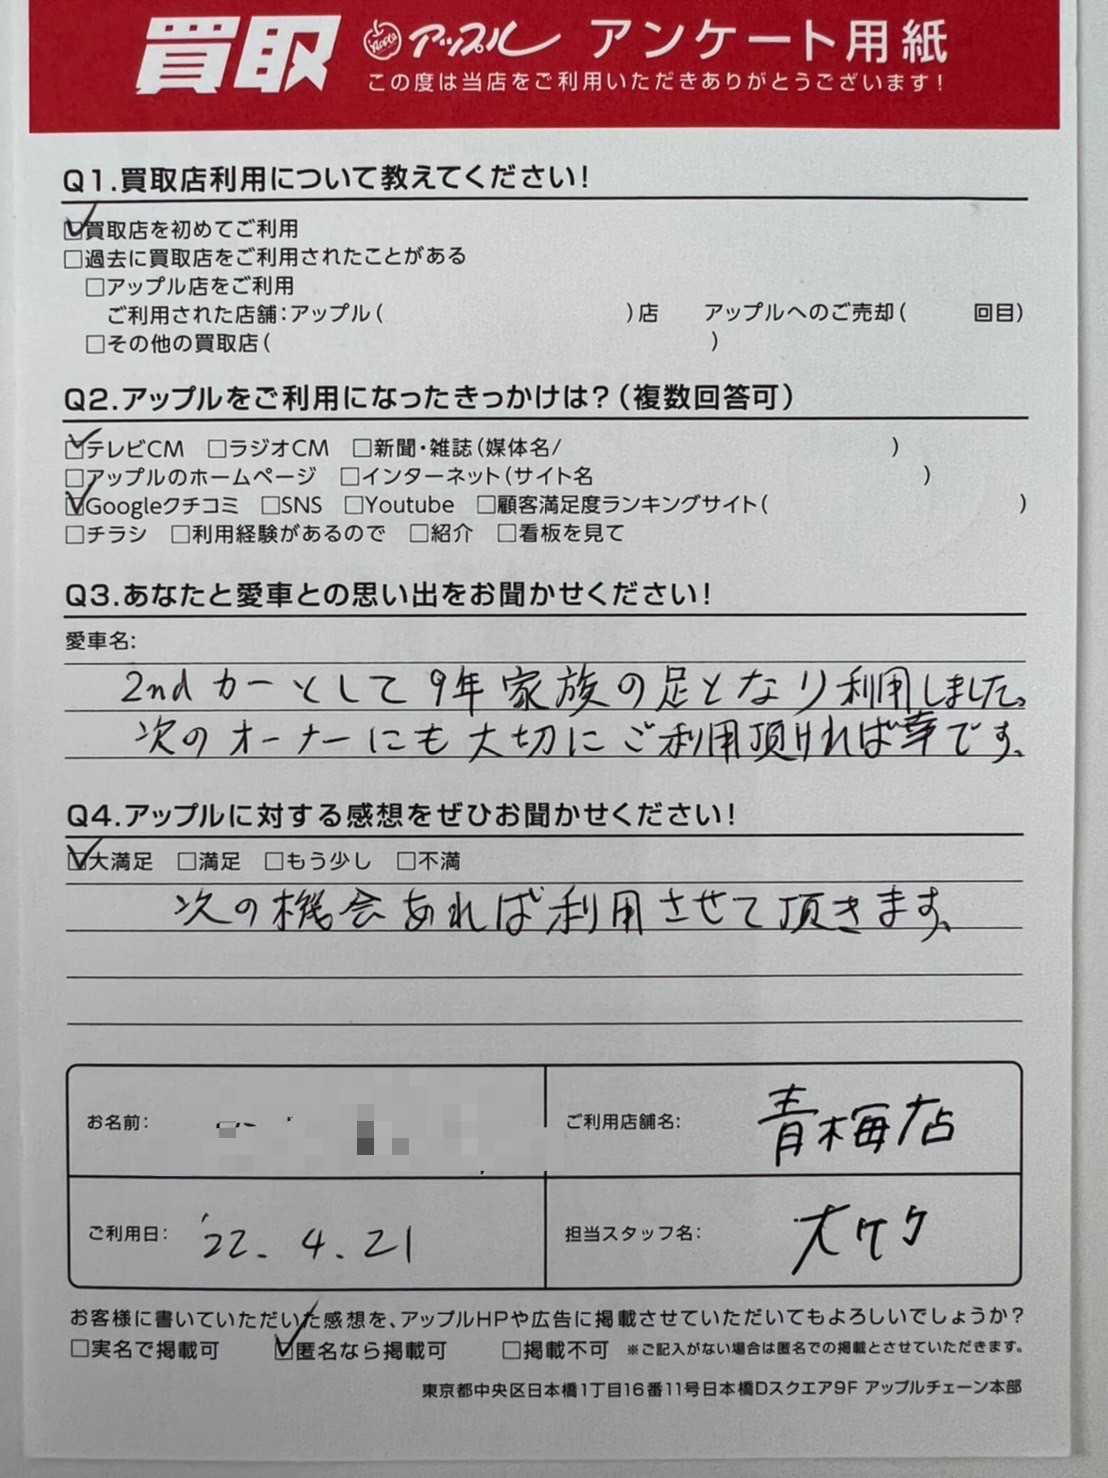 買取 Apple アップル アンケート用紙
この度は当店をご利用いただきありがとうございます!
Q1.買取店利用について教えてください!
☑買取店を初めてご利用
□過去に買取店をご利用されたことがある
□アップル店をご利用
ご利用された店舗:アップル( )店 アップルへのご売却( 回目)
□その他の買取店( )
Q2.アップルをご利用になったきっかけは?(複数回答可)
☑テレビCM □ラジオCM □新聞・雑誌(媒体名/ )
□アップルのホームページ □インターネット(サイト名 )
☑Googleクチコミ □SNS □Youtube □顧客満足度ランキングサイト( )
□チラシ □利用経験があるので □紹介 □看板を見て
Q3.あなたと愛車との思い出をお聞かせください!
愛車名:
2ndカーとして9年家族の足となり利用しました。
次のオーナーにも大切にご利用頂ければ幸です。
Q4.アップルに対する感想をぜひお聞かせください!
☑大満足 □満足 □もう少し □不満
次の機会あれば利用させて頂きます。
お名前: ご利用店舗名: 青梅店
ご利用日: '22.4.21 担当スタッフ名:
お客様に書いていただいた感想を、アップルHPや広告に掲載させていただいてもよろしいでしょうか?
□実名で掲載可 ☑匿名なら掲載可 □掲載不可 ※ご記入がない場合は匿名での掲載とさせていただきます。
東京都中央区日本橋1丁目16番11号日本橋Dスクエア9F アップルチェーン本部